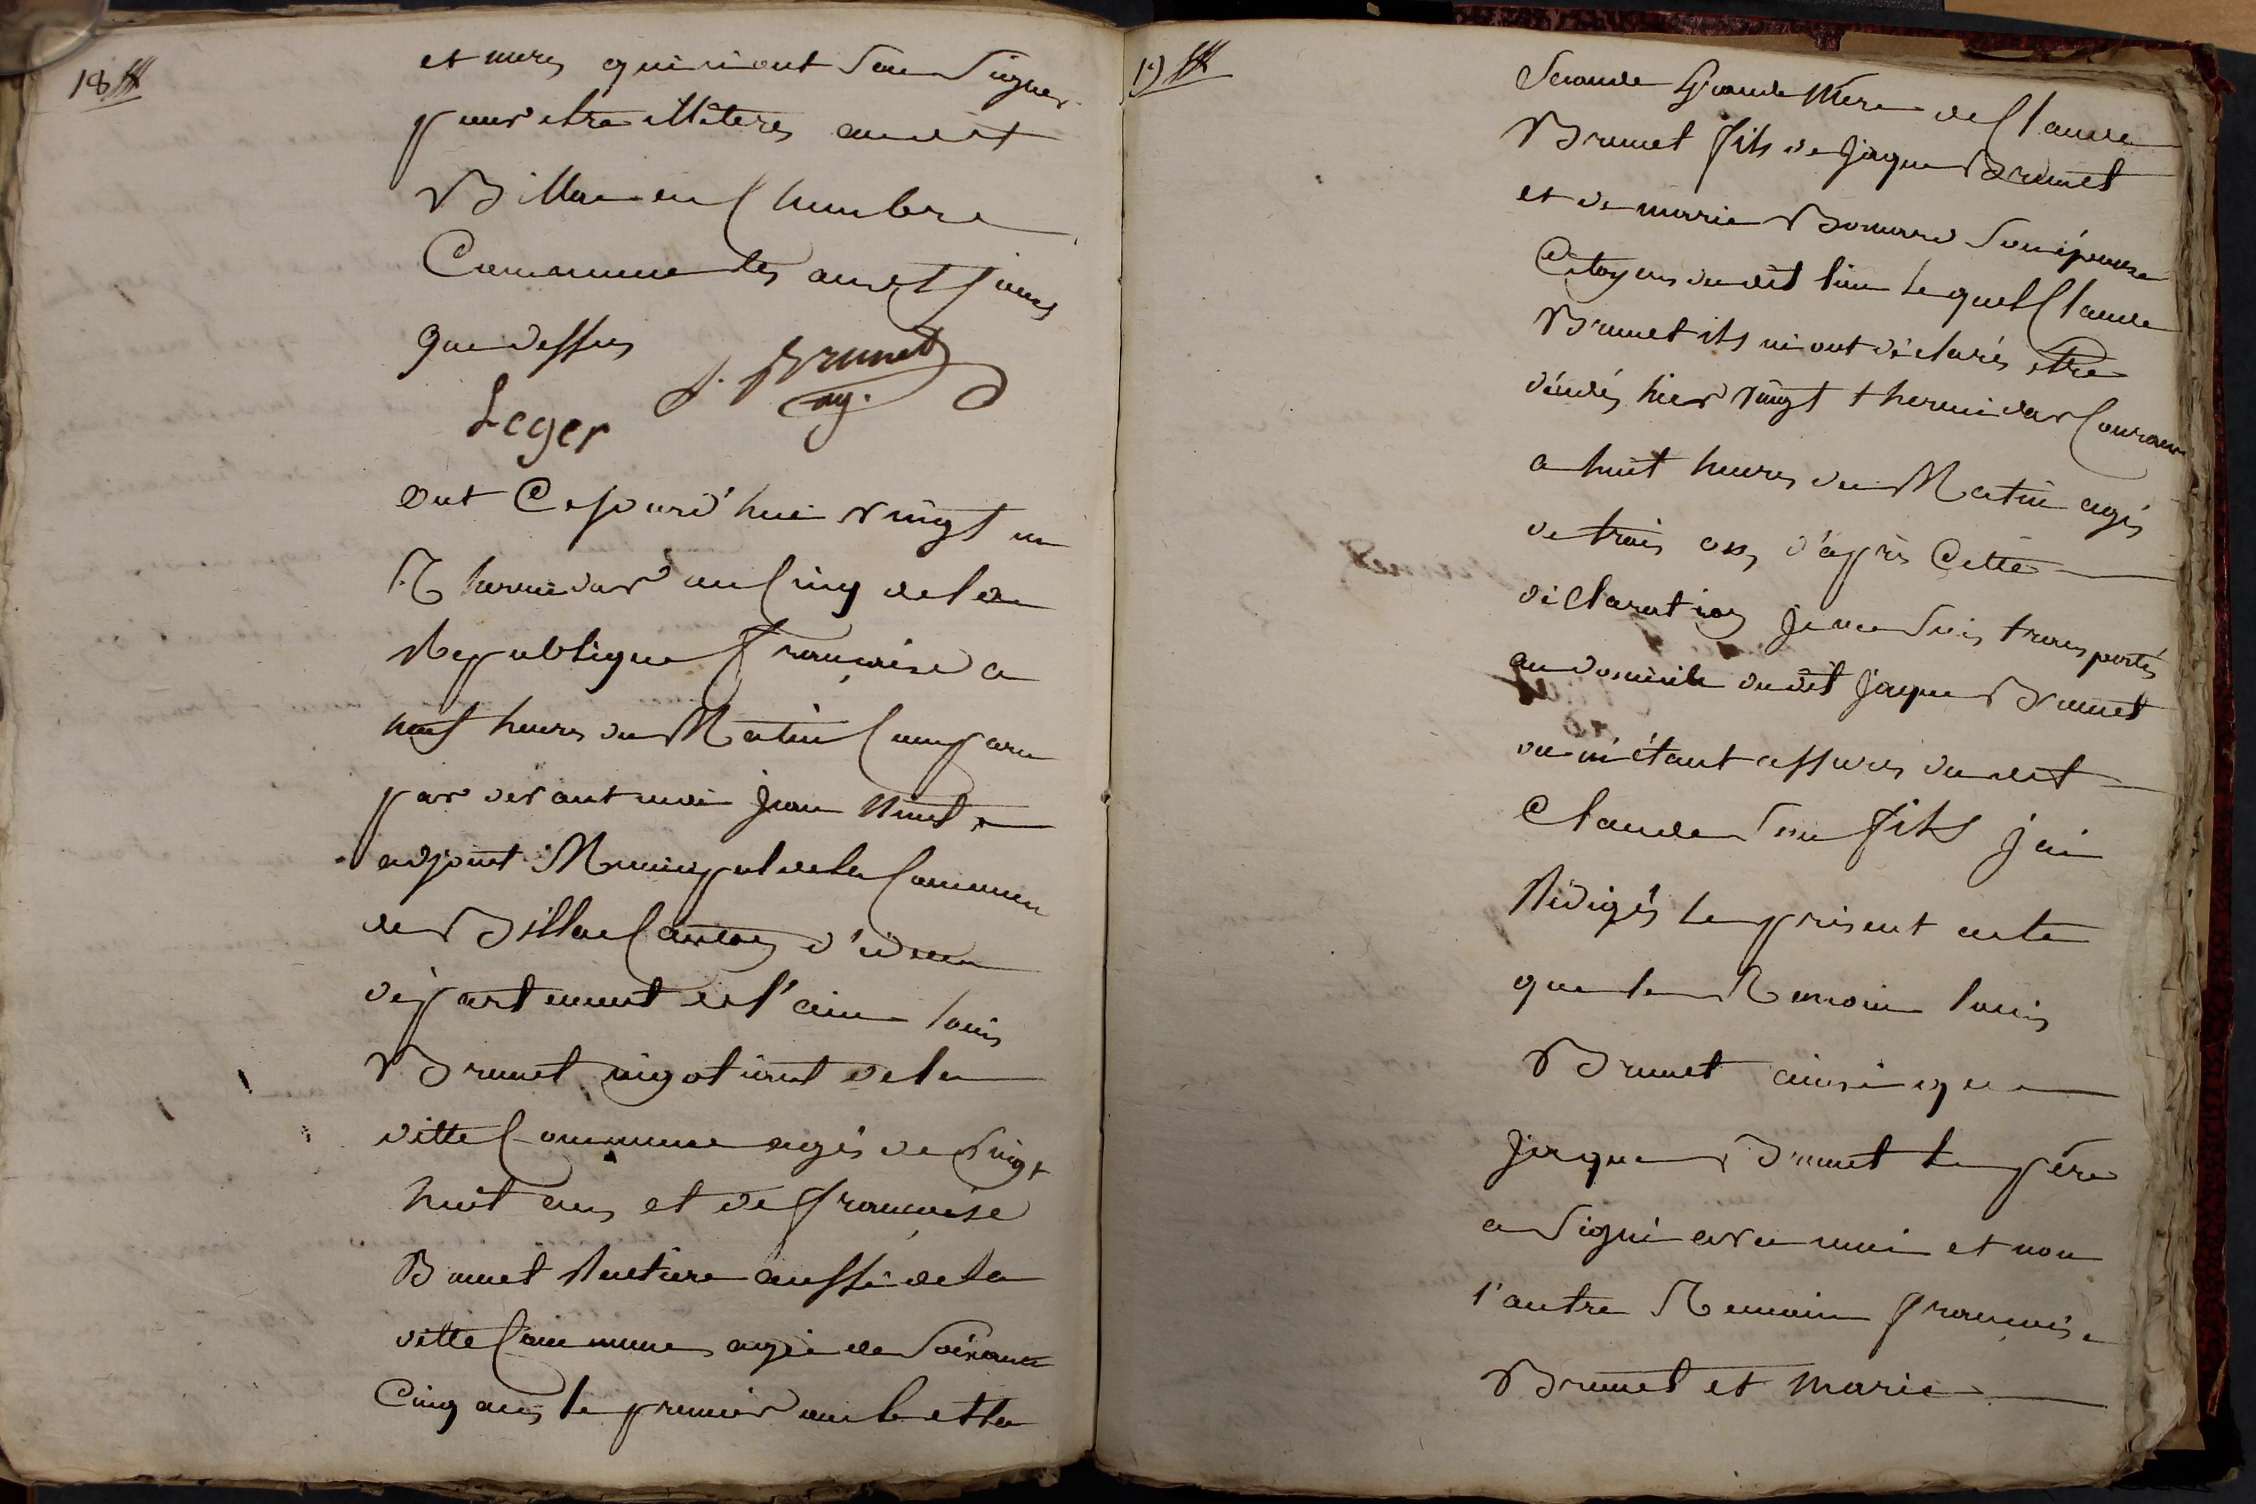 18
et mere qui n'ont Seu Signer
pour etre illiteres audit
Billiac en Chambre
Commune les an et Jours
que dessus
J. Brunet
ag.
Leger
dut Cejourd'hui vingt un
Thermidor an Cinq de la
Republique française a
neuf heures du Matin Comparu
par devant moi Jean Ninet
adjoint Municipal de la Commune
de Billiac Canton d'
département de l'ain louis
Brunet nigotient de la
ditte Commune agés de vingt
huit ans et de françoise
Brunet Rentiere aussi de la
ditte Commune agée de Soixante
Cinq ans le premier oncle et la
19
Seconde Grande Mère de Claude
Brunet fils de Jaque Brunet
et de marie Bonnard Son épouse
Citoyens dudit lieu lequel Claude
Brunet ils m'ont déclarés etre
décédés hier vingt thermidor Courant
a huit heures du Matin agés
de trois ans d'après Cette
déclaration Je me Suis transportés
au domicile dudit Jaque Brunet
ou m'étant assurés dudit
Claude Son fils J'ai
Rédigés le présent acte
que le Temoin louis
Brunet ainsi que
Jaque Brunet le père
a Signé avec moi et non
l'autre Temoin françoise
Brunet et Marie